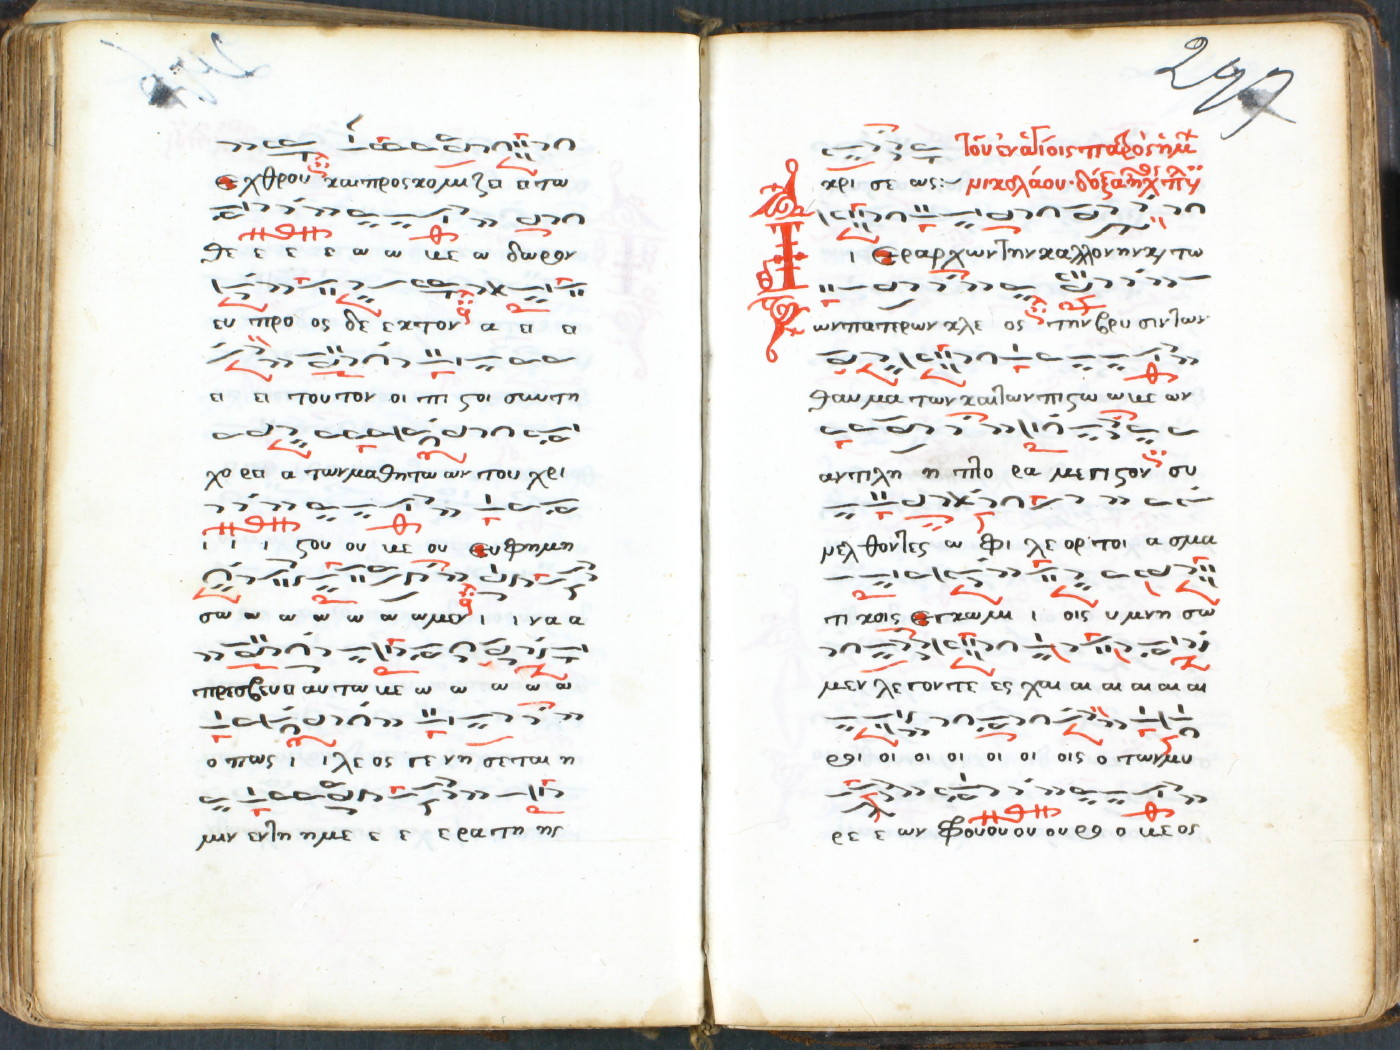 εχθρου και προσκομιζει ει τω
θε ε ε ε ω ω με ω δωρον
ευ προ ος δε εκτον α ει ει
ει ει τουτον οι πι ςοι συν τη
χο ρει α των μαθητω ων του χρι
ι ι ι ςου ου με ου ευφημη
σω ω ω ω ω ω ωμεν ι ι να α
πρεσβευει αυτω με ω ω ω ω ω
οπως ι ιλε ος γε νη σεται η
μιν εν τη ημε ε ε ερα τη ης
297
Του εν αγίοις πατρὸς ἡμ
κρι σε ως:
νικολάου· δόξα
ι εραρχων την καλλονην κ τω
ων πατερων κλε ος την βρυ σιν των
θαυμα των και των πιςω ω με ων
αντιλη η πτο ρα μεγιςον συ
μελ θοντες ω φι λε ορτοι α σμα
τι κοις εγκωμι ι οις υμνη σω
μεν λεγοντε ες χαι αι αι αι αι αι
ροι οι οι οι οι οι οις ο των μυ
ρε ε ων φουου ου ου ρο ο με ος